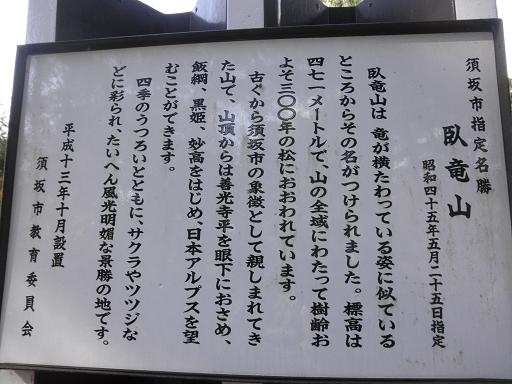 須坂市指定名勝
臥竜山
昭和四十五年五月二十五日指定
臥竜山は 竜が横たわっている姿に似ている
ところからその名がつけられました。標高は
四七一メートルで、山の全域にわたって樹齢お
よそ三〇〇年の松におおわれています。
古くから須坂市の象徴として親しまれてき
た山で、山頂からは善光寺平を眼下におさめ、
飯綱、黒姫、妙高をはじめ、日本アルプスを望
むことができます。
四季のうつろいとともに、サクラやツツジな
どに彩られ、たいへん風光明媚な景勝の地です。
平成十三年十月設置
須坂市教育委員会